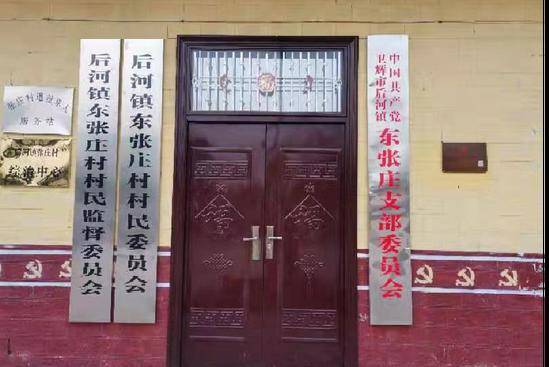 后河镇东张庄村村民监督委员会
后河镇东张庄村村民委员会
中国共产党
卫辉市后河镇
东张庄支部委员会
服务站
后河镇张庄村
综治中心